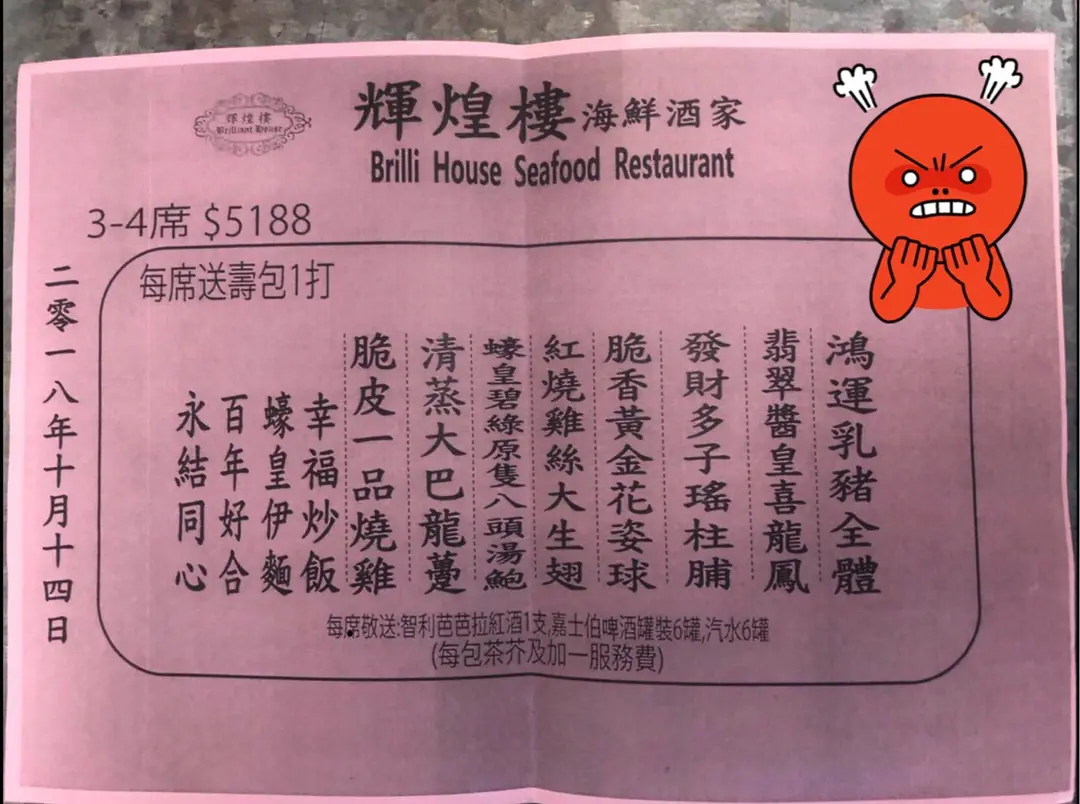 輝煌樓
Brilliant House
輝煌樓海鮮酒家
Brilli House Seafood Restaurant
3-4席 $5188
每席送壽包1打
鴻運乳豬全體
翡翠醬皇喜龍鳳
發財多子瑤柱脯
脆香黃金花姿球
紅燒雞絲大生翅
蠔皇碧綠原隻八頭湯鮑
清蒸大巴龍躉
脆皮一品燒雞
幸福炒飯
蠔皇伊麵
百年好合
永結同心
二零一八年十月十四日
每席敬送:智利芭芭拉紅酒1支,嘉士伯啤酒罐裝6罐,汽水6罐
(每包茶芥及加一服務費)